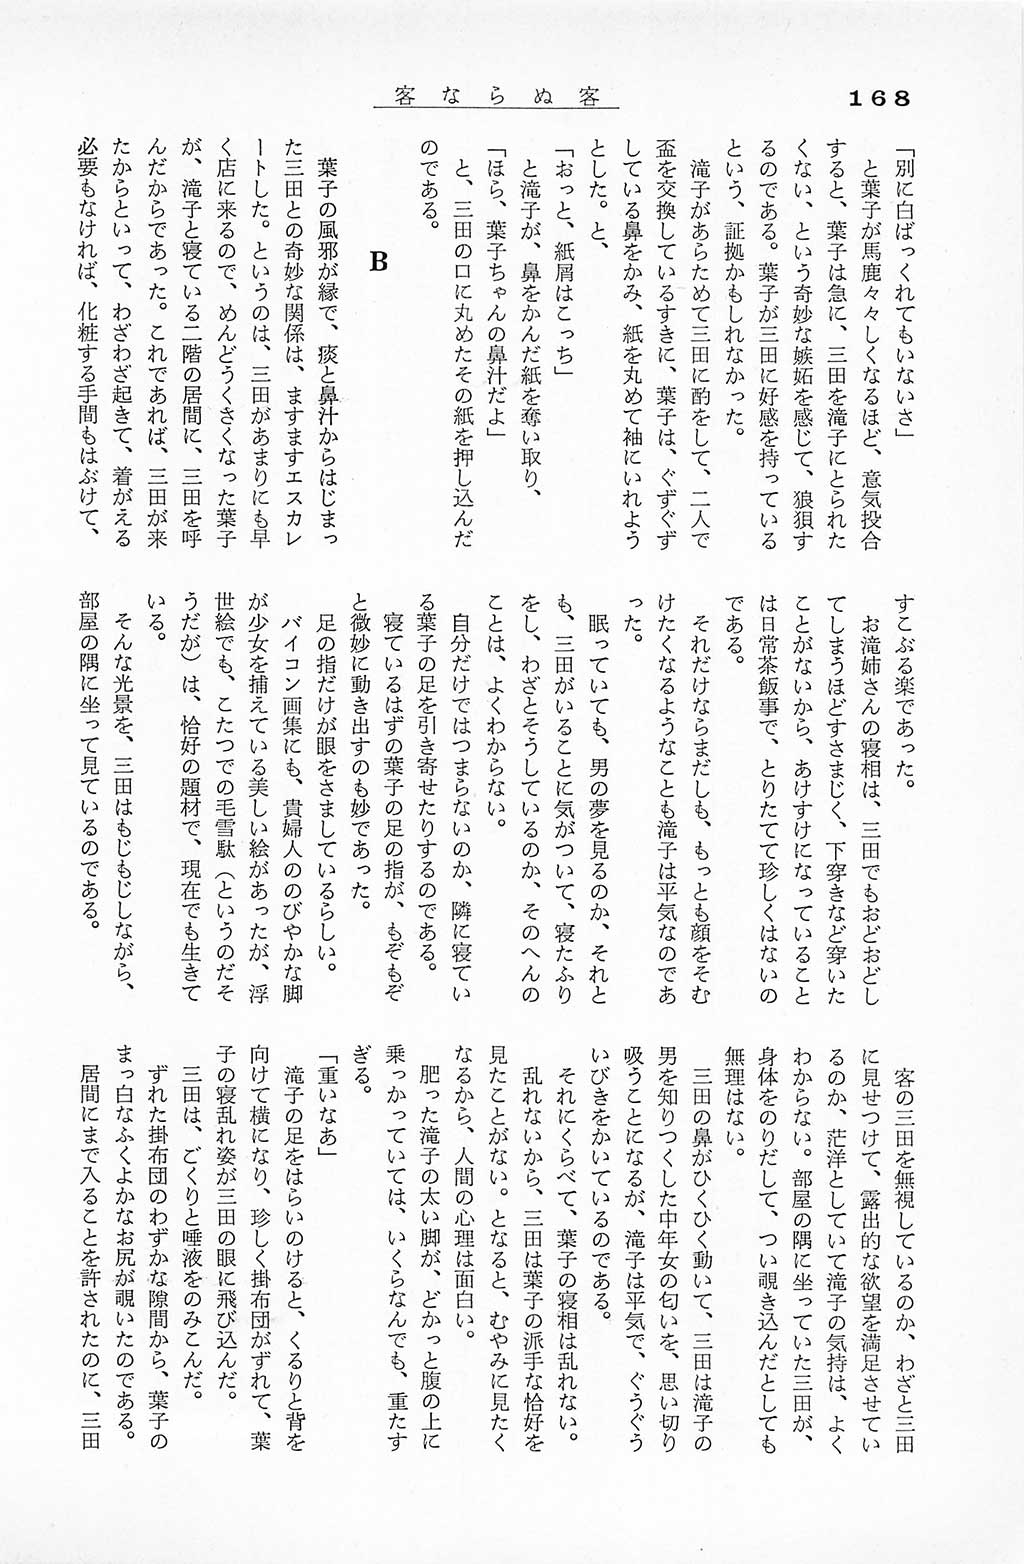 168
客ならぬ客
「別に白ばっくれてもいないさ」
と葉子が馬鹿々々しくなるほど、意気投合
すると、葉子は急に、三田を滝子にとられた
くない、という奇妙な嫉妬を感じて、狼狽す
るのである。葉子が三田に好感を持っている
という、証拠かもしれなかった。
滝子があらためて三田に酌をして、二人で
盃を交換しているすきに、葉子は、ぐずぐず
している鼻をかみ、紙を丸めて袖にいれよう
とした。と、
「おっと、紙屑はこっち」
と滝子が、鼻をかんだ紙を奪い取り、
「ほら、葉子ちゃんの鼻汁だよ」
と、三田の口に丸めたその紙を押し込んだ
のである。
B
葉子の風邪が縁で、痰と鼻汁からはじまっ
た三田との奇妙な関係は、ますますエスカレ
ートした。というのは、三田があまりにも早
く店に来るので、めんどうくさくなった葉子
が、滝子と寝ている二階の居間に、三田を呼
んだからであった。これであれば、三田が来
たからといって、わざわざ起きて、着がえる
必要もなければ、化粧する手間もはぶけて、
すこぶる楽であった。
お滝姉さんの寝相は、三田でもおどおどし
てしまうほどすさまじく、下穿きなど穿いた
ことがないから、あけすけになっていること
は日常茶飯事で、とりたてて珍しくはないの
である。
それだけならまだしも、もっとも顔をそむ
けたくなるようなことも滝子は平気なのであ
った。
眠っていても、男の夢を見るのか、それと
も、三田がいることに気がついて、寝たふり
をし、わざとそうしているのか、そのへんの
ことは、よくわからない。
自分だけではつまらないのか、隣に寝てい
る葉子の足を引き寄せたりするのである。
寝ているはずの葉子の足の指が、もぞもぞ
と微妙に動き出すのも妙であった。
足の指だけが眼をさましているらしい。
バイコン画集にも、貴婦人ののびやかな脚
が少女を捕えている美しい絵があったが、浮
世絵でも、こたつでの毛雪駄（というのだそ
うだが）は、恰好の題材で、現在でも生きて
いる。
そんな光景を、三田はもじもじしながら、
部屋の隅に坐って見ているのである。
客の三田を無視しているのか、わざと三田
に見せつけて、露出的な欲望を満足させてい
るのか、茫洋としていて滝子の気持は、よく
わからない。部屋の隅に坐っていた三田が、
身体をのりだして、つい覗き込んだとしても
無理はない。
三田の鼻がひくひく動いて、三田は滝子の
男を知りつくした中年女の匂いを、思い切り
吸うことになるが、滝子は平気で、ぐうぐう
いびきをかいているのである。
それにくらべて、葉子の寝相は乱れない。
乱れないから、三田は葉子の派手な恰好を
見たことがない。となると、むやみに見たく
なるから、人間の心理は面白い。
肥った滝子の太い脚が、どかっと腹の上に
乗っかっていては、いくらなんでも、重たす
ぎる。
「重いなあ」
滝子の足をはらいのけると、くるりと背を
向けて横になり、珍しく掛布団がずれて、葉
子の寝乱れ姿が三田の眼に飛び込んだ。
三田は、ごくりと唾液をのみこんだ。
ずれた掛布団のわずかな隙間から、葉子の
まっ白なふくよかなお尻が覗いたのである。
居間にまで入ることを許されたのに、三田